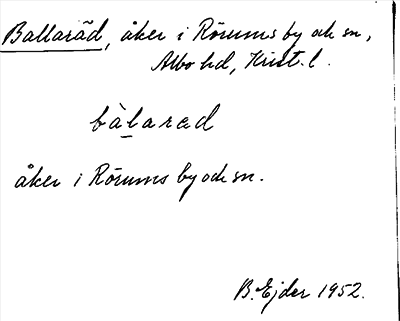 Ballaräd, åker i Rörums by och sn,
Albo hd, Krist. l.
bàlaræd
åker i Rörums by och sn.
B. Ejder 1952.